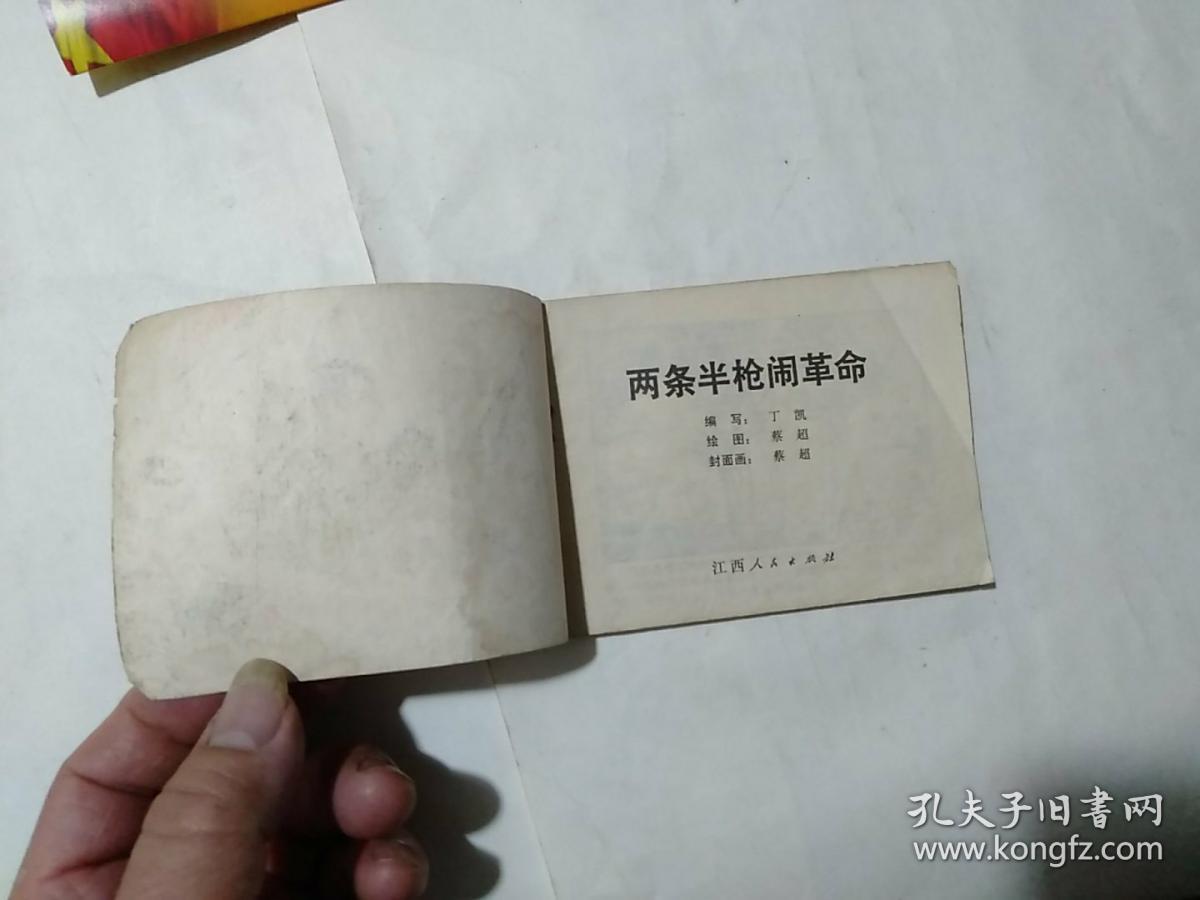 两条半枪闹革命
编 写： 丁 凯
绘 图： 蔡 超
封面画： 蔡 超
江西人民出版社
孔夫子旧書网
www.kongfz.com